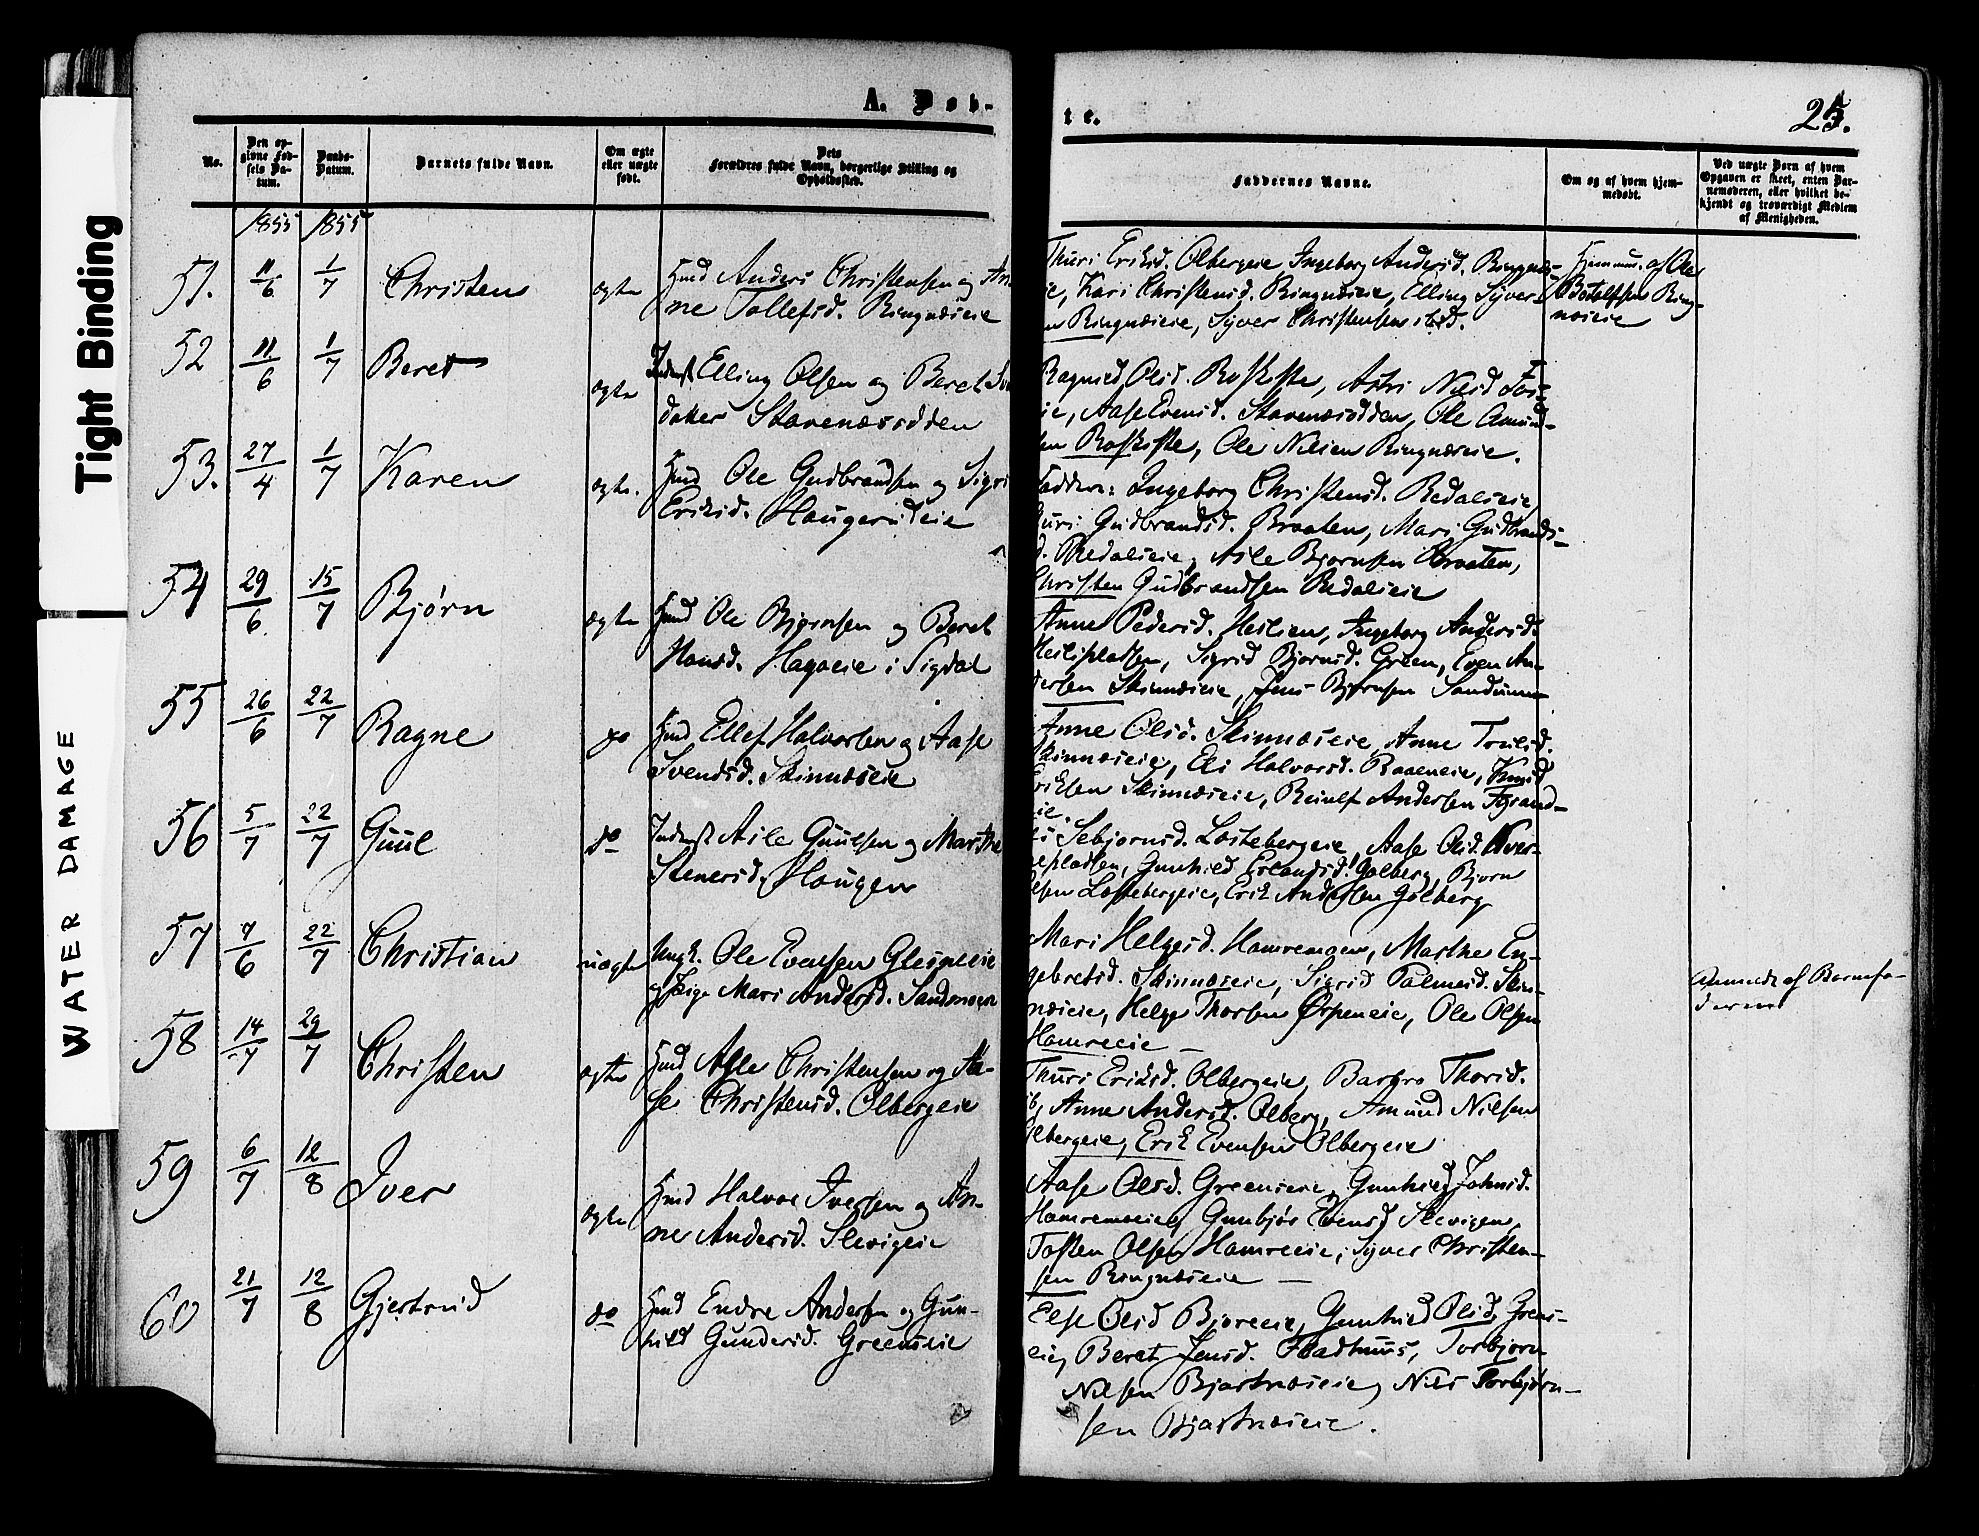 Tight Binding
WATER DAMAGE
A. Døb-
te.
25.
No.
Den op-
givne Fød-
sels Da-
tum.
Daabs-
Datum.
Barnets fulde Navn.
Om ægte
eller uægte
født.
Dets
Forældres fulde Navn, borgerlige Stilling og
Opholdssted.
Faddernes Navne.
Om og af hvem hjem-
medøbt.
Ved uægte Barn af hvem
Opgaven er skeet, enten Bar-
nemoderen, eller hvilket be-
kjendt og troværdigt Medlem
af Menigheden.
1855 1855
51. 11/6 1/7 Christen ægte Huusmd Anders Christensen og An-
ne Tollefsd. Ringnæseie
Thuri Eriksd. Olbergeie Ingeborg Andersd. Ringnæs-
ie, Kari Christensd. Ringnæseie, Elling Syver-
n Ringnæseie, Syver Christensen ibid.
Hjemme. af Ole
Botolfsen Ring-
næseie
52 11/6 1/7 Beret ægte Inderst Elling Olsen og Beret
Stavenæsodden
Ragnild Olsd. Roskifte, Astri Nilsd
ie, Aase Evensd. Stavenæsodden, Ole Amund-
sen Roskifte, Ole Nilsen Ringnæseie.
53. 27/4 1/7 Karen ægte. Hmd Ole Gudbrandsen og Sigri
Eriksd. Haugerudeie
Faddere: Ingeborg Christensd. Redalseie,
Guri Gudbrandsd. Braaten, Mari Gudbrands-
d. Redalseie, Asle Bjørnsen Braaten,
Christen Gudbrandsen Redalseie
54 29/6 15/7 Bjørn ægte Hmd Ole Bjørnsen og Beret
Hansd. Hagaeie i Sigdal
Anne Pedersd. Heilien, Ingeborg Andersd.
Heilipladsen, Sigrid Bjørnsd. Green, Even An-
dersen Skinnæseie, Jens Bjørnsen Sandumm
55 26/6 22/7 Ragne do Hmd Ellef Halvorsen og Aase
Svendsd. Skinnæseie
Anne Olsd. Skinnæseie, Anne Trulsd.
Skinnæseie, Eli Halvorsd. Braaeneie, Knud
Eriksen Skinnæseie, Reiulf Andersen Fygrand-
eie.
56 5/7 22/7 Guul do Inderst Asle Guulsen og Marthe
Stenersd. Haugen
Sebjørnsd. Lostebergeie, Aase Olsd. Kver-
nepladsen, Gunhild Erlandsd. Golberg, Bjørn
Olsen Lostebergeie, Erik Andersen Golberg
57 7/6 22/7 Christian uægte Ungk. Ole Evensen Glesneeie
og Pige Mari Andersd. Sandmoen
Mari Helgesd. Hamremoen, Marthe En-
gebretsd. Skinnæseie, Sigrid Palmesd. Skin-
næseie, Helge Thorsen Ørpeneie, Ole Olsen
Hamreeie
Anmeldt af Barnefa-
deren
58 14/7 29/7 Christen ægte Hmd Asle Christensen og Aa-
se Christensd. Olbergeie
Thuri Eriksd. Olbergeie, Barbro Thorsd.
ib, Anne Andersd. Olberg, Amund Nilsen
Olbergeie, Erik Evensen Olbergeie
59 6/7 12/8 Iver ægte Hmd Halvor Iversen og An-
ne Andersd. Slevigeie
Aase Olsd. Greenseie, Gunhild Johnsd.
Hamremoeie, Gunbjør Evensd Slevigen,
Tosten Olsen Hamreeie, Syver Christen-
sen Ringnæseie
60 21/7 12/8 Gjertrud do Hmd Endre Andersen og Gun-
hild Gundersd. Greenseie
Else Olsd Bjøreeie, Gunhild Olsd. Grens-
eie, Beret Jensd. Fladhuus, Torbjørn
Nilsen Bjartnæseie, Nils Torbjørn-
sen Bjartnæseie.